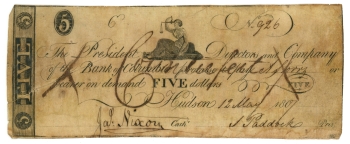 5
FIVE
6
No 926
The President Directors and Company
of the Bank of Columbia
or bearer on demand FIVE dollars
FIVE
Hudson 12 May
Jas Nixon Cash
S. Paddock Pres
5